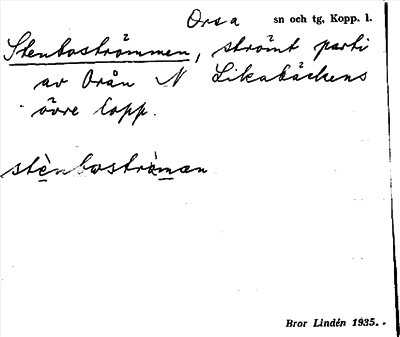 Orsa sn och tg, Kopp. l.
Stenboströmmen, strömt parti
av Orån N Likabäckens
övre lopp.
stènboströ̀man
Bror Lindén 1935.